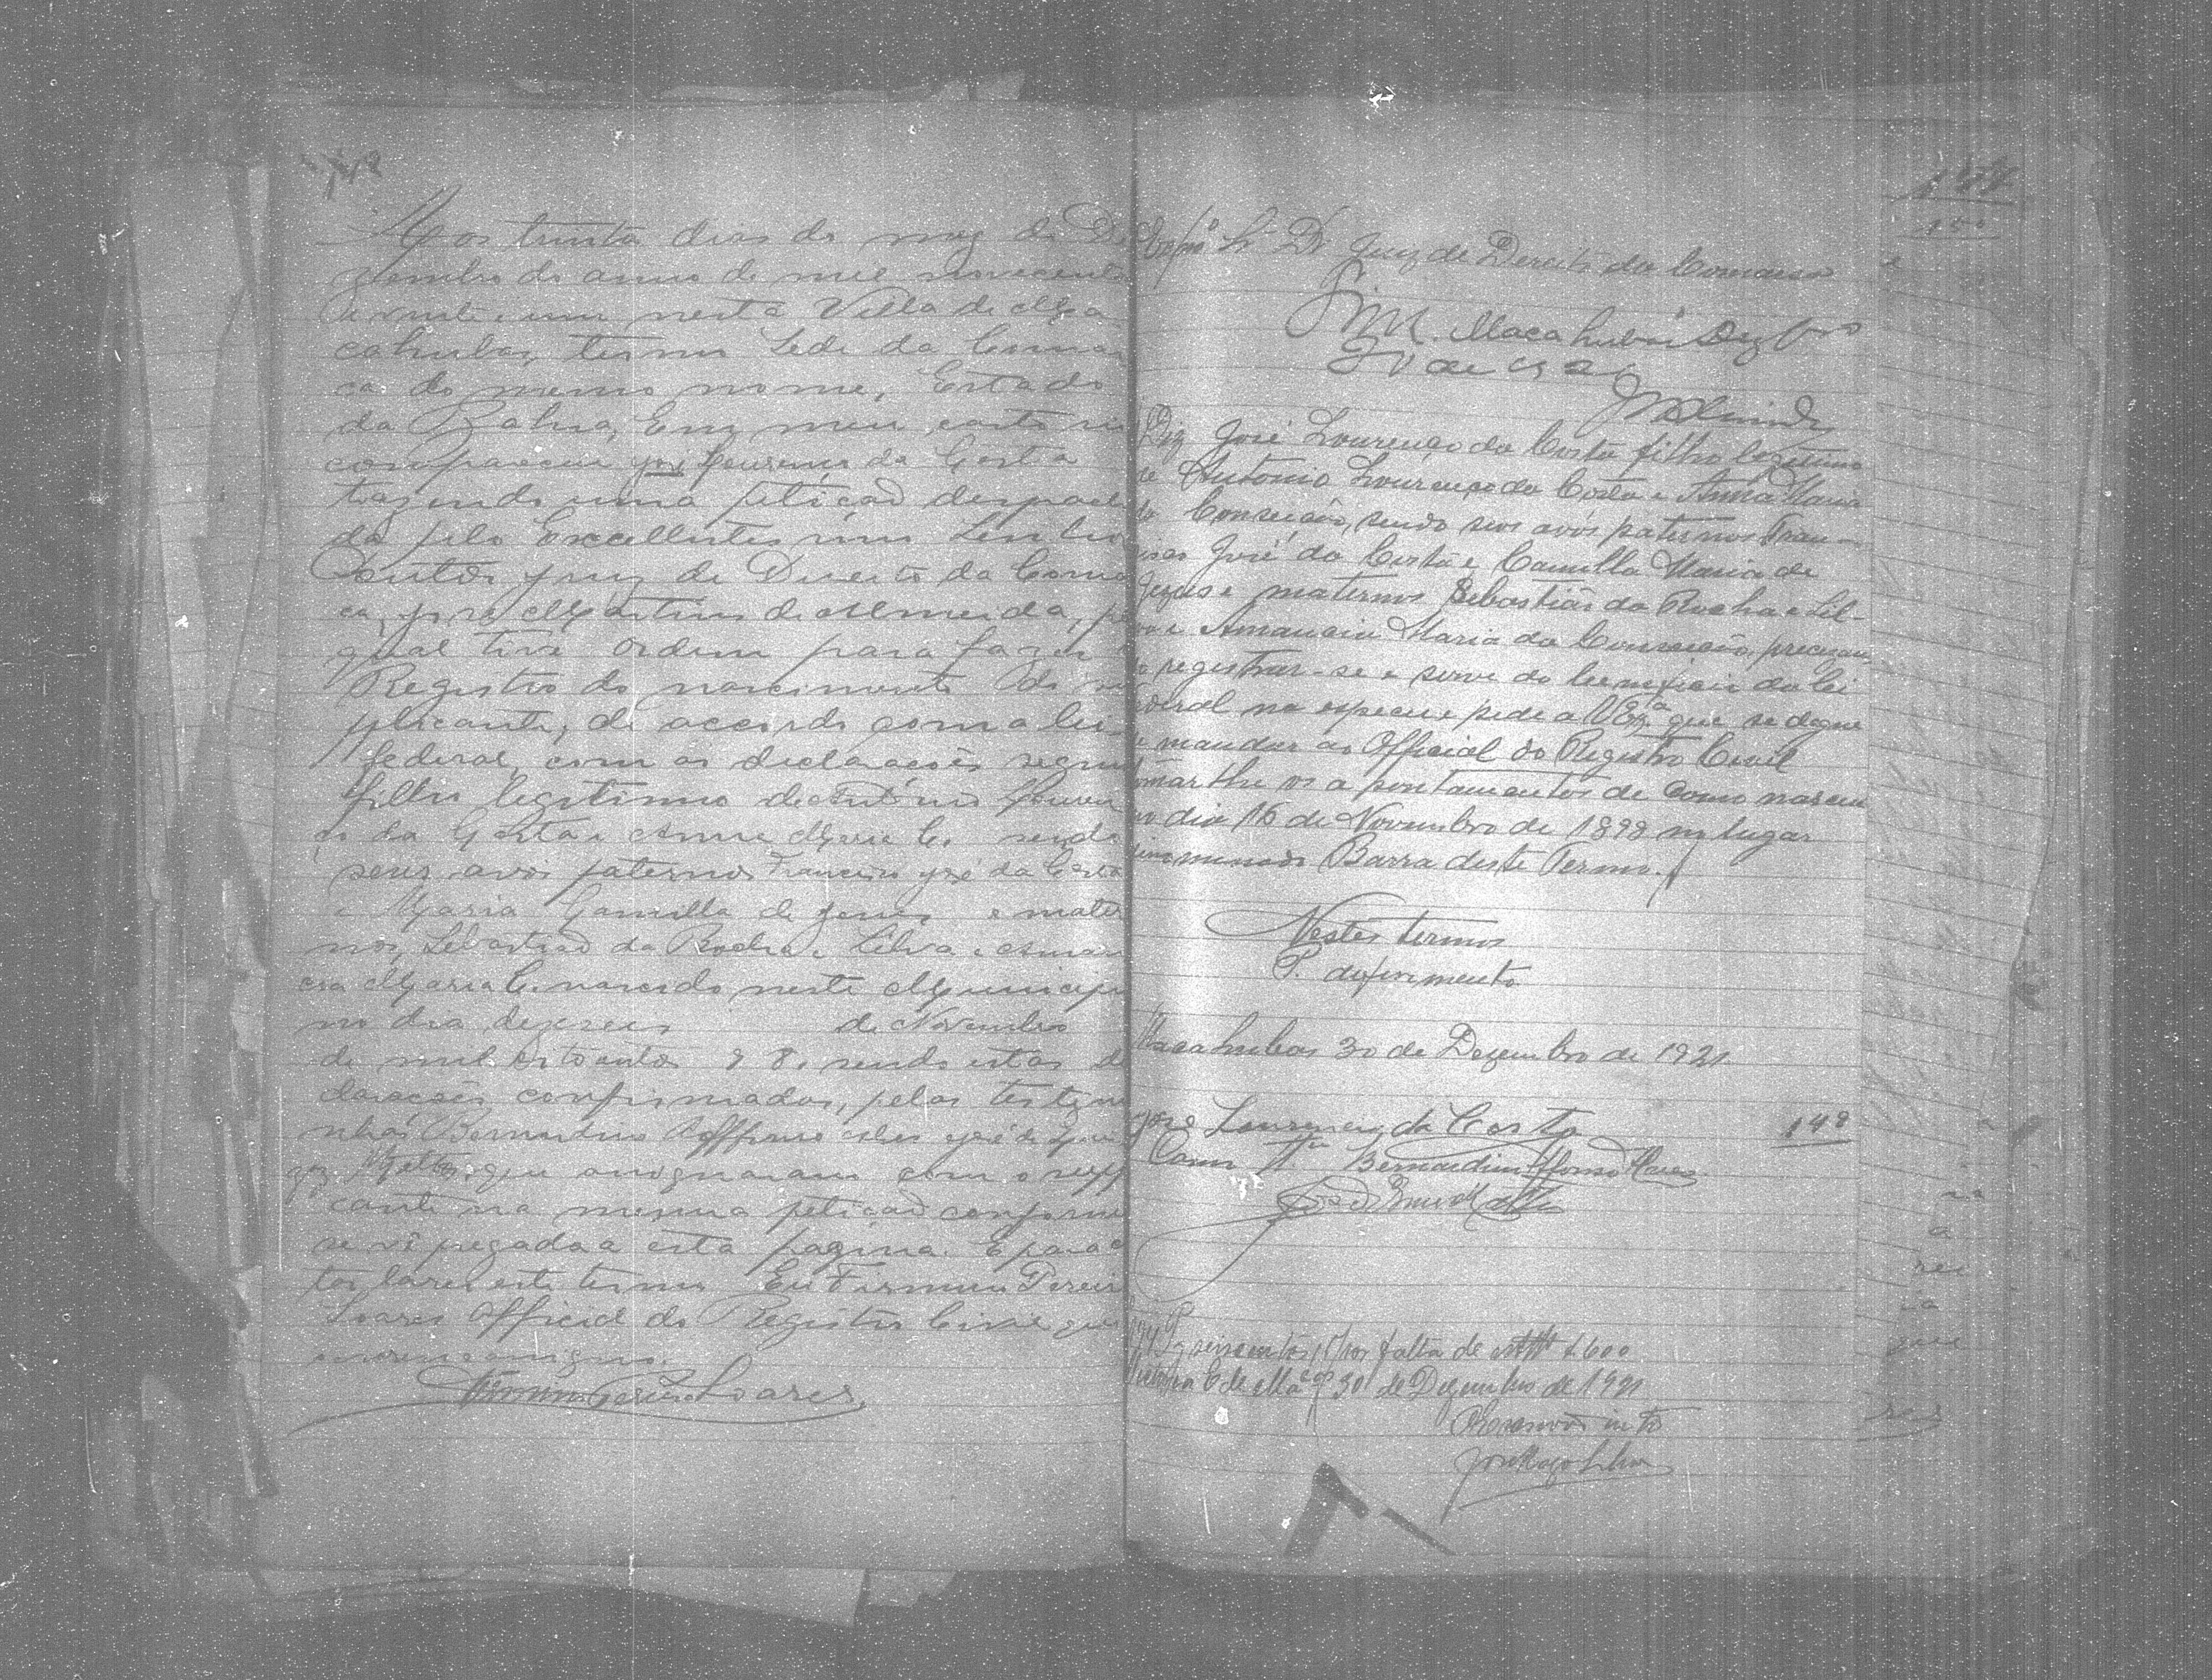 148
Aos trinta dias do mez de De
zembro do anno de mil novecento
e vinte e um nesta Villa de Ma
cahubas, termo Sede da Comar
ca do mesmo nome, Estado
da Bahia, Em meu cartorio
compareceu José Lourenço da Costa
trazendo uma petição despacha
da pelo Excellentissimo Senhor
Doutor Juiz de Direito da Coma
ca, José Martins de Almeida, pe
qual tive ordem para fazer o
Registro do nascimento do su
plicante, de accordo com a lei
federal, com as declarações segui
filho legitimo de Antonio Louren
ço da Costa e Anna Maria C. sendo
seus avós paternos Francisco José da Costa
e Maria Camilla de Jesus e mater
nos, Sebastião da Rocha e Silva e Aman
cia Maria C. nascido neste Municipi
no dia dezeseis de Novembro
de mil oitocentos 98, sendo estas de
clarações confirmadas, pelas testemu
nhas Bernardino Affonso José de
Mattos, que assignaram com o supp
cante na mesma petição conforme
se vê pregada a esta pagina. E para c
tos lavrei este termo Eu Firmino Pereir
Soares Official do Registro Civil que
escrevi e assigno.
Firmino Pereira Soares
Exmo Sr. Dr. Juiz de Direito da Comarca
Macahubas Dezbro
30 de 1921
Diz José Lourenço da Costa filho legitimo
de Antonio Lourenço da Costa e Anna Maria
da Conseição, sendo seus avós paternos Fran-
cisco José da Costa e Camilla Maria de
Jezus e maternos Sebastião da Rocha e Sil-
va e Amancia Maria da Conseição, precisan
do registrar-se e serve do beneficio da lei
federal na especie pede a V Exa que se digne
de mandar ao Official do Registro Civil
tomar lhe os apontamentos de como nasceu
no dia 16 de Novembro de 1898 no lugar
denominado Barra deste Termo.
Nestes termos
P. deferimento
Macahubas 30 de Dezembro de 1921
José Lourenço da Costa 148
Como Ta Bernardino Affonso
José Mattos
seiscentos por falta de 1.600
30 de Dezembro de 1921
O Escrivão
150